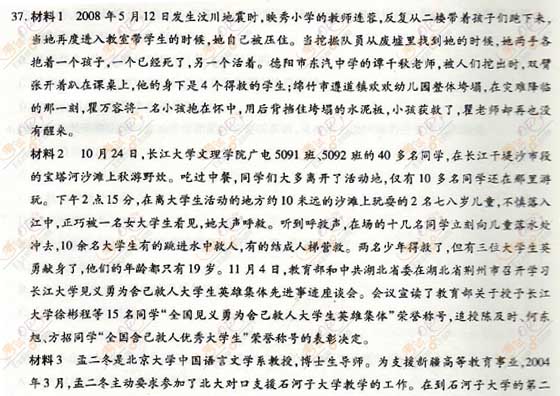 37.材料1 2008年5月12日发生汶川地震时,映秀小学的教师连蓉,反复从二楼带着孩子们跑下来,
当她再度进入教室带学生的时候,她自己被压住。当挖掘队员从废墟里找到她的时候,她两手各
抱着一个孩子,一个已经死了,另一个活着。德阳市东汽中学的谭千秋老师,被人们挖出时,双臂
张开着趴在课桌上,他的身下是4个得救的学生;绵竹市遵道镇欢欢幼儿园整体垮塌,在灾难降临
的那一刻,瞿万容将一名小孩抱在怀中,用后背挡住垮塌的水泥板,小孩获救了,瞿老师却再也没
有醒来。
材料2 10月24日,长江大学文理学院广电5091班、5092班的40多名同学,在长江干堤沙市段
的宝塔河沙滩上秋游野炊。吃过中餐,同学们大多离开了活动地,仅有10多名同学还在那里游
玩。下午2点15分,在离大学生活动的地方约10米远的沙滩上玩耍的2名七八岁儿童,不慎落入
江中,正巧被一名女大学生看见,她大声呼救。听到呼救声,在场的十几名同学立刻向儿童落水处
冲去,10余名大学生有的跳进水中救人,有的结成人梯营救。两名少年得救了,但有三位大学生英
勇献身了,他们的年龄都只有19岁。11月4日,教育部和中共湖北省委在湖北省荆州市召开学习
长江大学见义勇为舍己救人大学生英雄集体先进事迹座谈会。会议宣读了教育部关于授予长江
大学徐彬程等15名同学“全国见义勇为舍己救人大学生英雄集体”荣誉称号,追授陈及时、何东
旭、方招同学“全国舍己救人优秀大学生”荣誉称号的表彰决定。
材料3 孟二冬是北京大学中国语言文学系教授,博士生导师。为支援新疆高等教育事业,2004
年3月,孟二冬主动要求参加了北大对口支援石河子大学教学的工作。在到石河子大学的第二